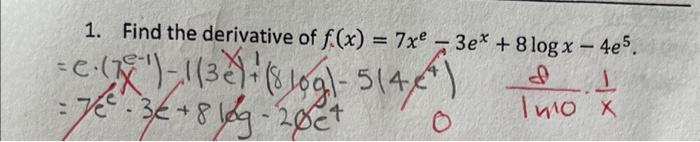 1. Find the derivative of f(x) = 7xᵉ − 3eˣ + 8 log x − 4e⁵.
= e·(7x^(e-1)) - 1(3e^x) + (8 log)^1 - 5(4e⁴)
= 7e^e · 3e + 8 log - 20e⁴
8/ln10 · 1/x
0